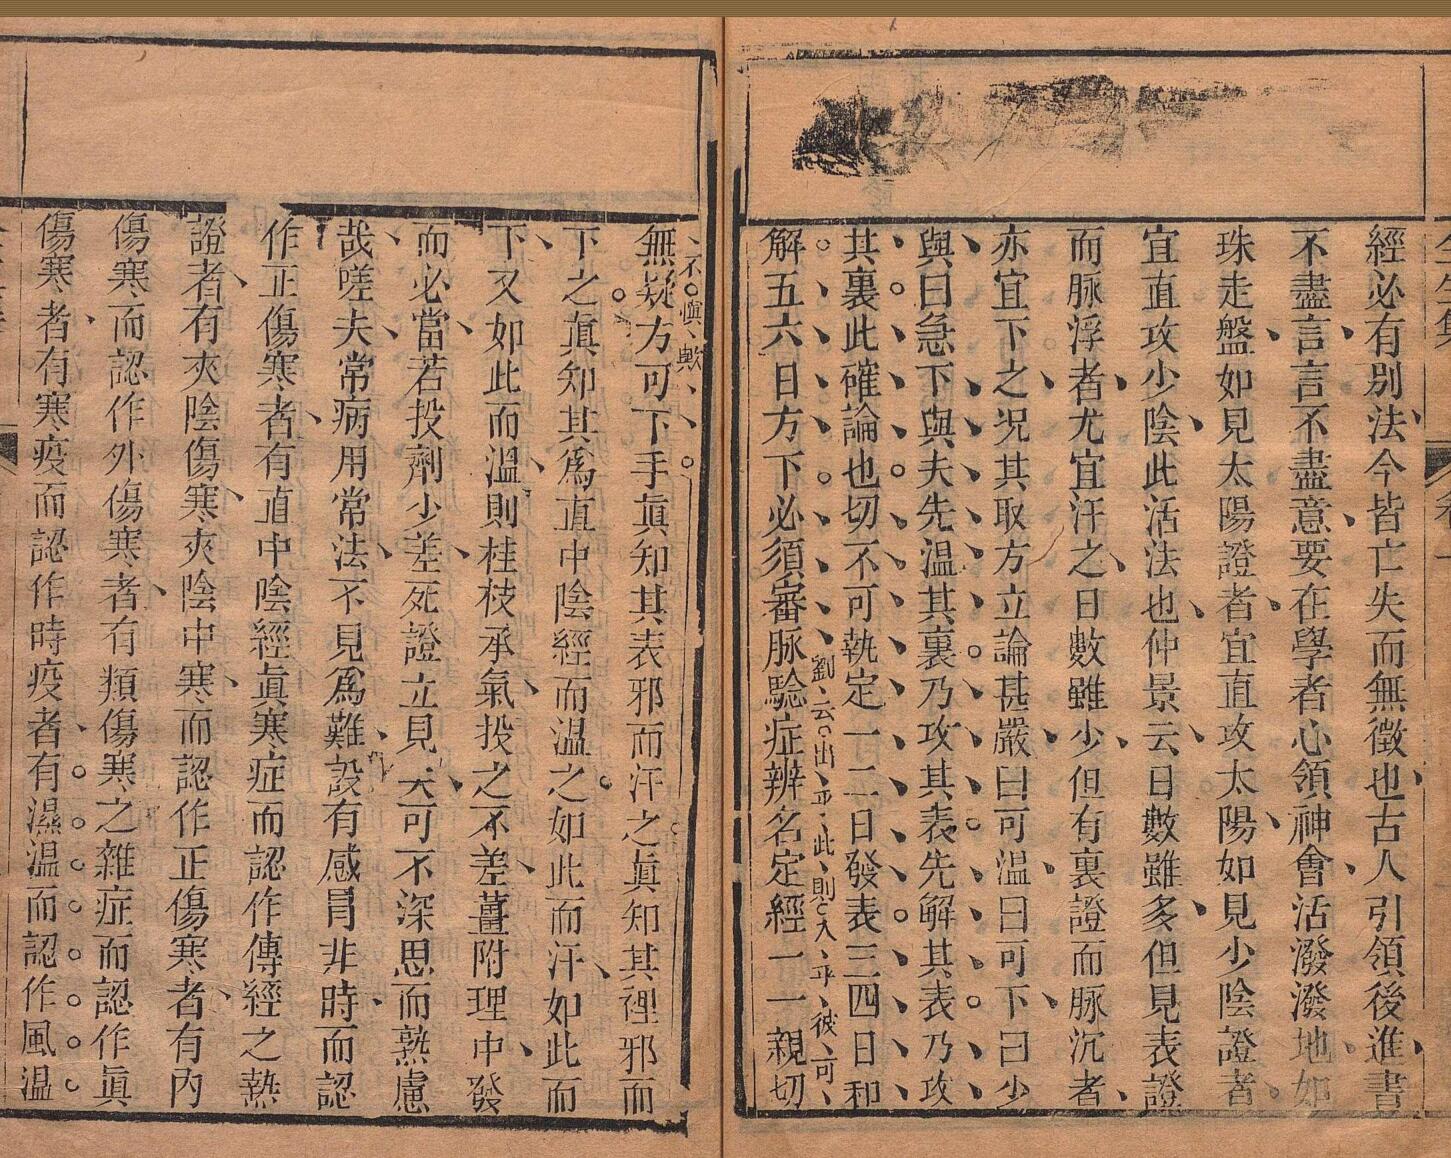 經必有別法今皆亡失而無徵也古人引領後進書
不盡言言不盡意要在學者心領神會活潑潑地如
珠走盤如見太陽證者宜直攻太陽如見少陰證者
宜直攻少陰此活法也仲景云日數雖多但見表證
而脉浮者尤宜汗之日數雖少但有裏證而脉沉者
亦宜下之况其取方立論甚嚴曰可溫曰可下曰少
與曰急下與夫先溫其裏乃攻其表先解其表乃攻
其裏此確論也切不可執定一二日發表三四日和
解五六日方下必須審脉驗症辨名定經一一親切
劉云出乎此則入乎彼可
不愼歟
無疑方可下手眞知其表邪而汗之眞知其裡邪而
下之眞知其爲直中陰經而溫之如此而汗如此而
下又如此而溫則桂枝承氣投之不差薑附理中發
而必當若投劑少差死證立見矣可不深思而熟慮
哉嗟夫常病用常法不見爲難設有感冐非時而認
作正傷寒者有直中陰經眞寒症而認作傳經之熱
證者有夾陰傷寒夾陰中寒而認作正傷寒者有內
傷寒而認作外傷寒者有類傷寒之雜症而認作眞
傷寒者有寒疫而認作時疫者有濕溫而認作風溫